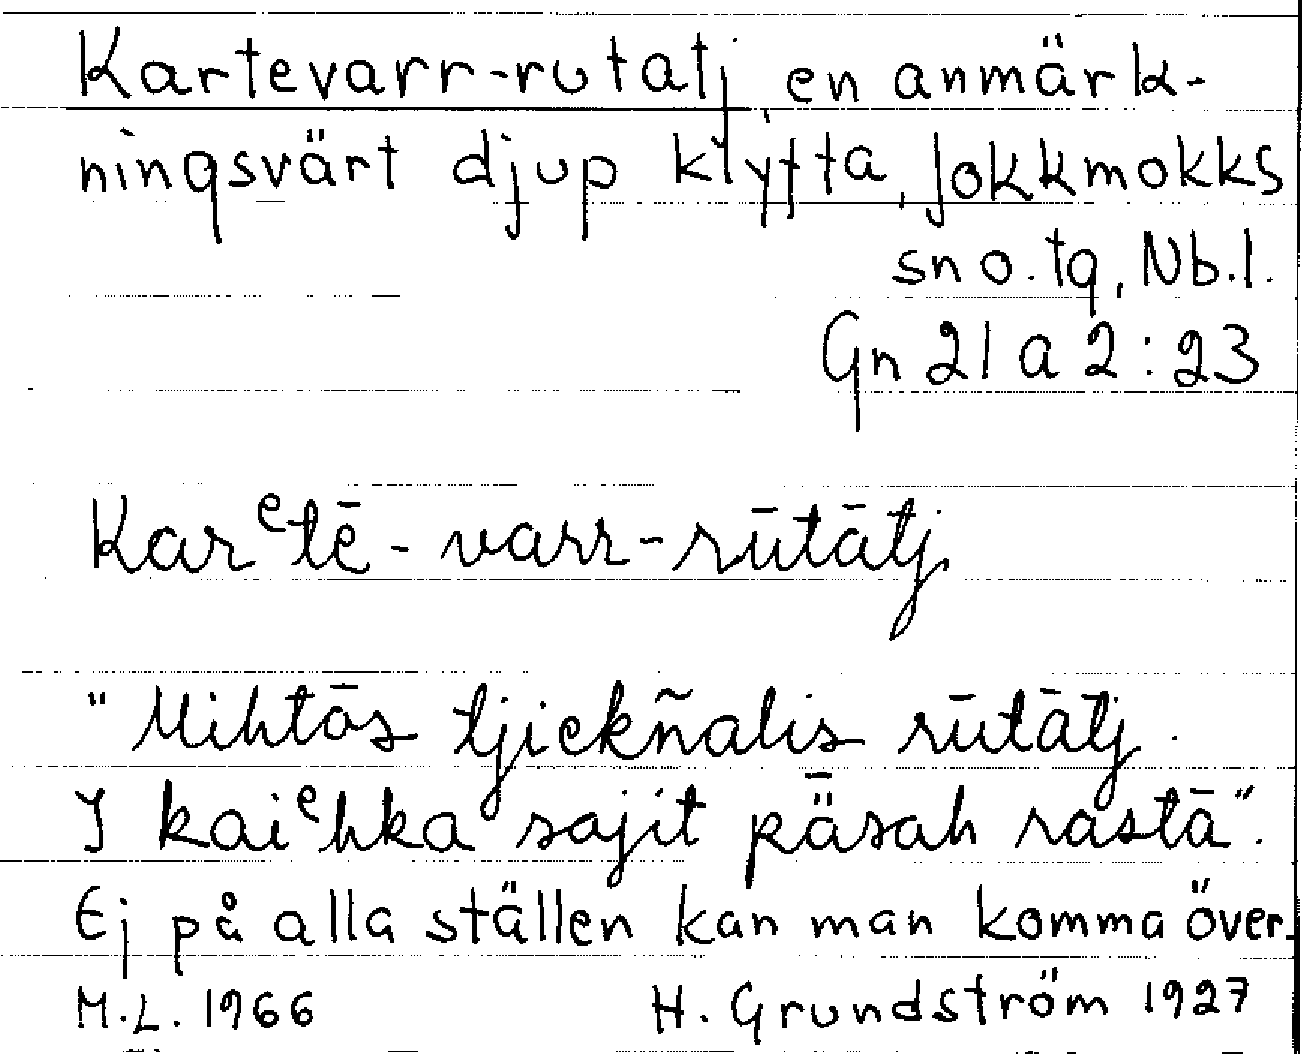 Kartevarr-rutatj, en anmärk-
ningsvärt djup klyfta, Jokkmokks
sn o. tg, Nb.l.
Gn 21 a 2:23
Karᵉtē-varr-rūtātj.
"Mihtās tjiekñalis rūtātj.
I kaiᵉhka sajit pǟsah rastā".
Ej på alla ställen kan man komma över.
M.L. 1966 H. Grundström 1927